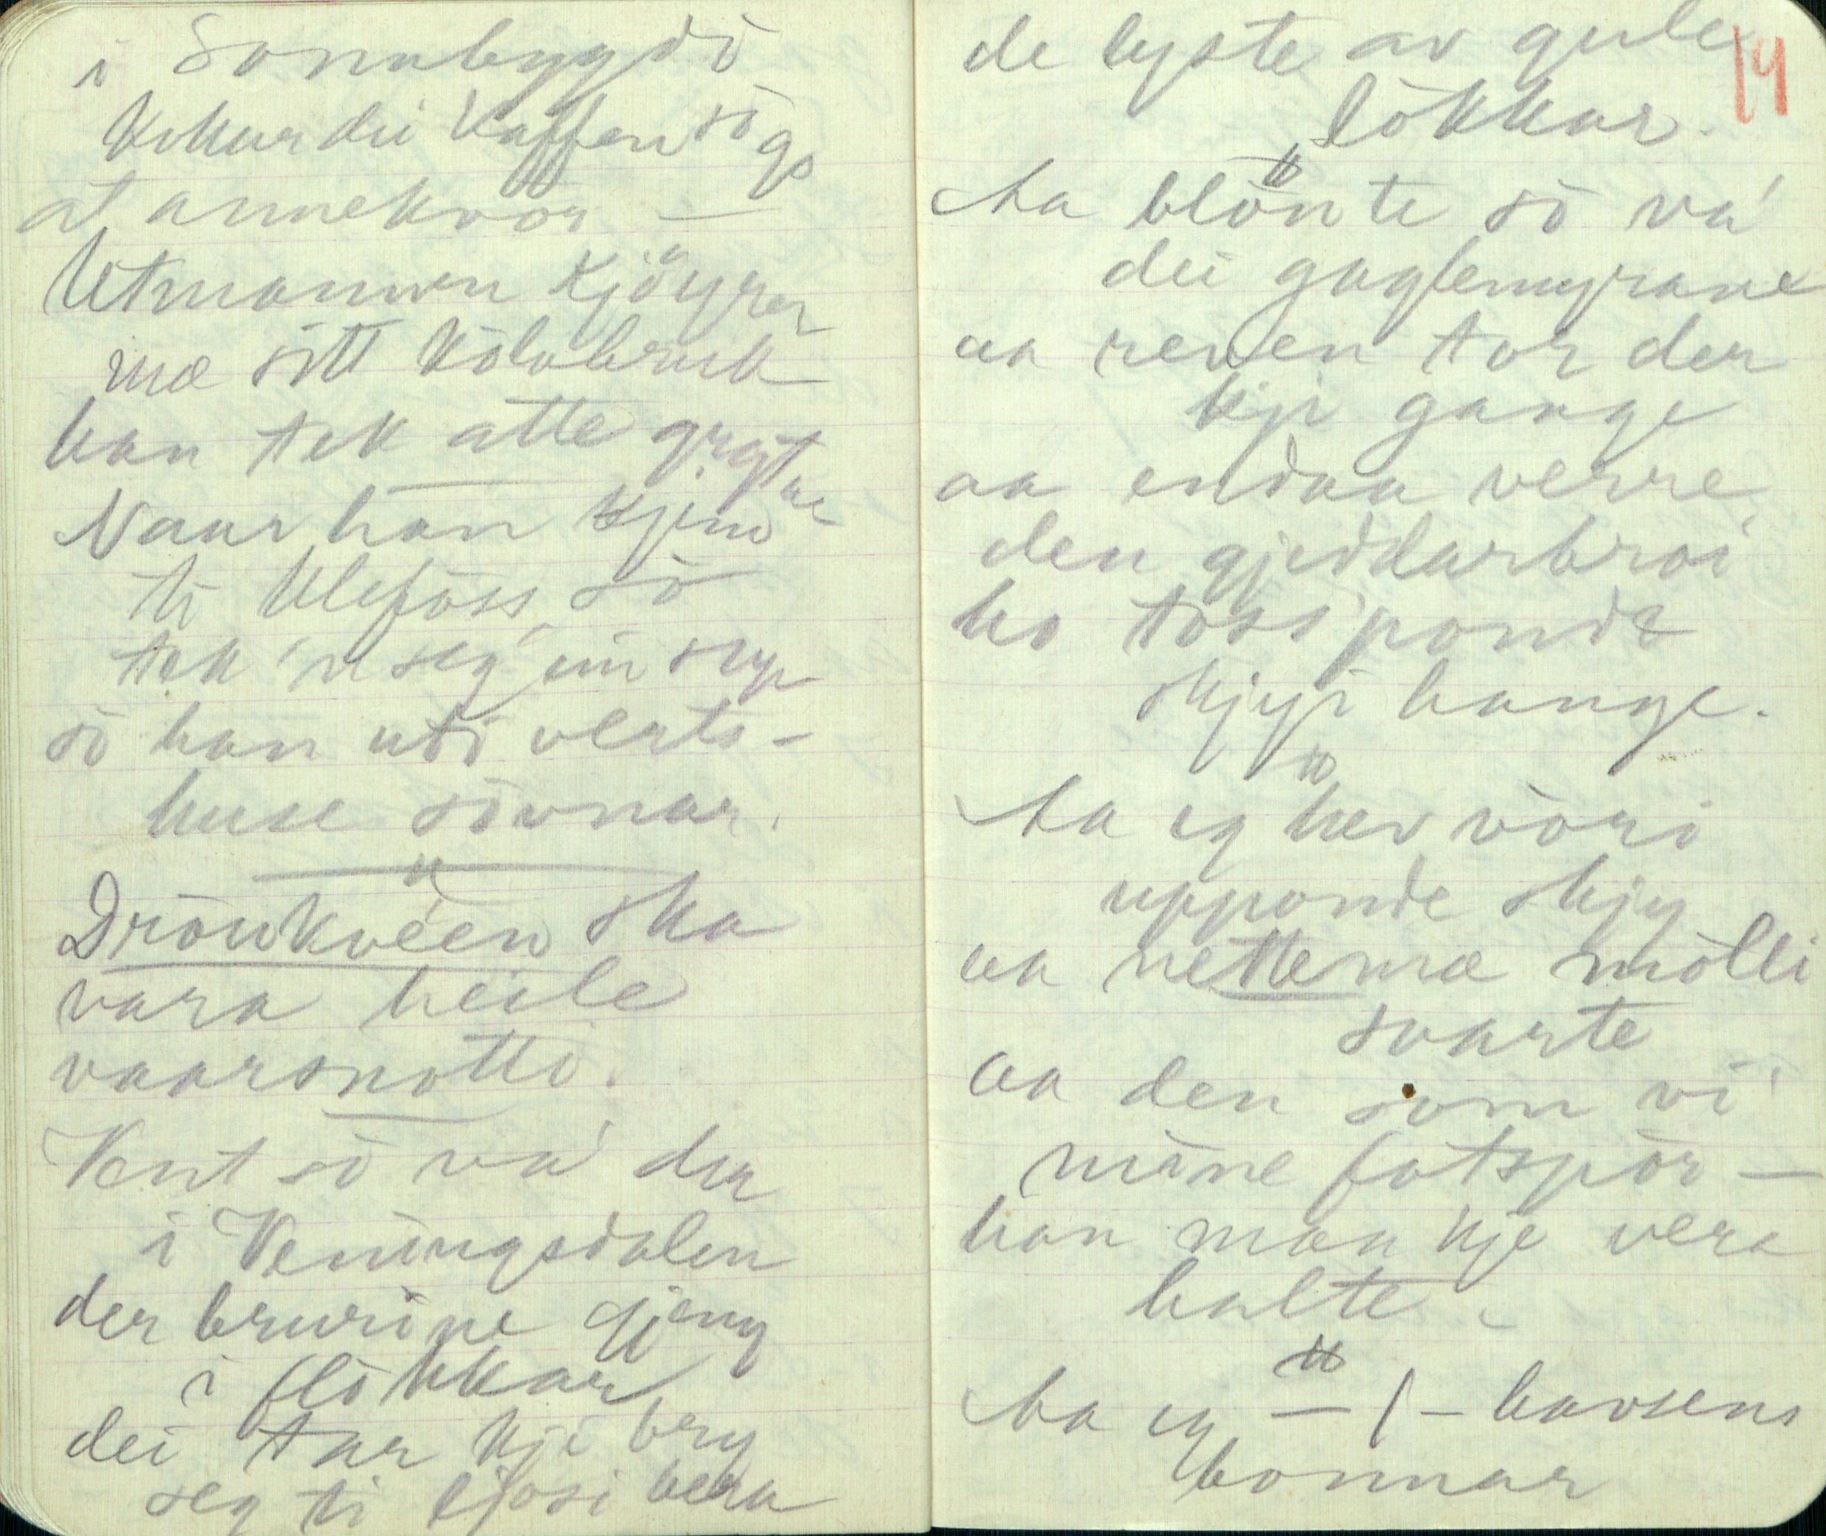 i Sonnabygdi
Kokur dei Kaffen sò go
at annekvor —
Utmannen kjöyrer
mæ sitt kòlabruk
han tek atte grjòtne
Naar han kjem
ti Ulefoss, sò
tek 'n seg ein sup
sò han uti verts-
huse sòvnar.
"
Draumkvéen ska
vara heile
vaarsnotti.
Kent sò va' der
i Kveningsdalen
der brurine gjeng
i flòkkar
dei tar kji bry
seg ti ljosi bera
14
de lyste av gule
lòkkar.
"
Aa blònte sò va'
dei gaglemyrane
aa reven tor der
kji gange
aa endaa verre
den gjeddarbroi
ho toss'ponde
skjyi hange.
"
Aa eg hev vòri
upponde skjy
aa nettemæ mòlli
svarte
aa den som vi'
mine fotspòr —
han maa kje vera
halte.
"
Aa eg — / — havsens
bonnar